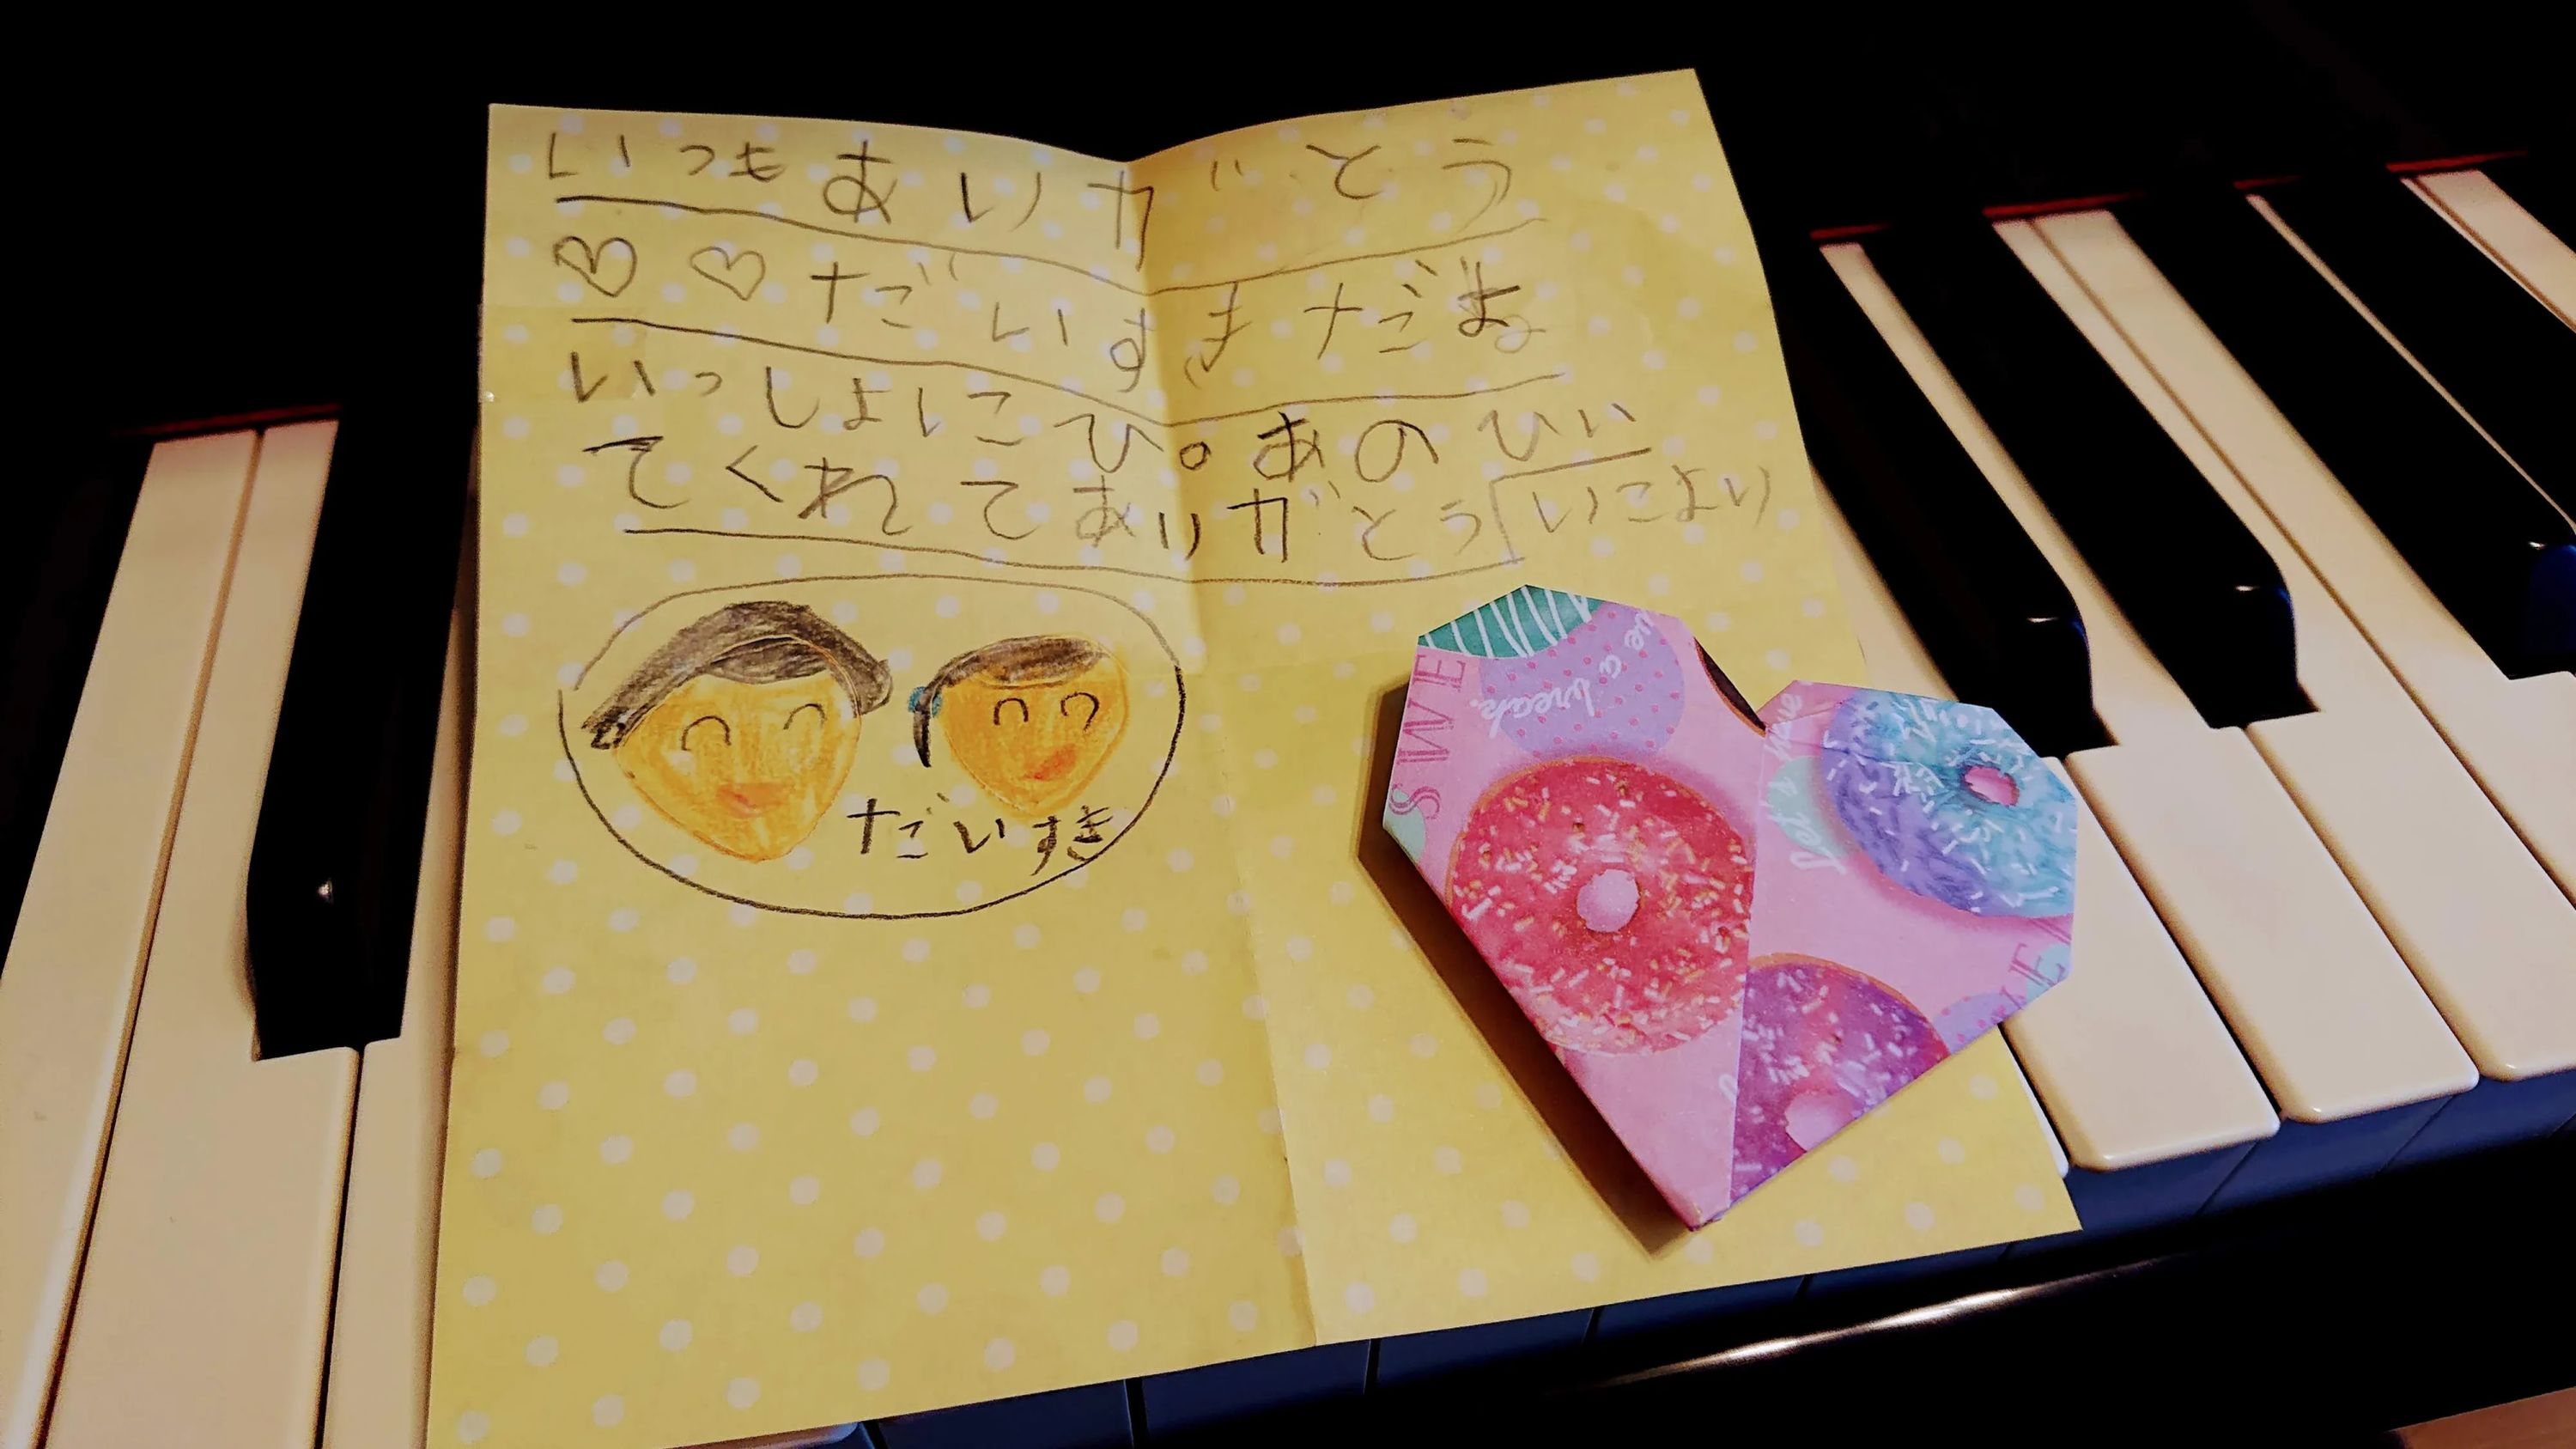 いつもありがとう
♡♡だいすきだよ
いっしょにひ。あのひい
てくれてありがとう
いこより
だいすき
SWEET
have a break.